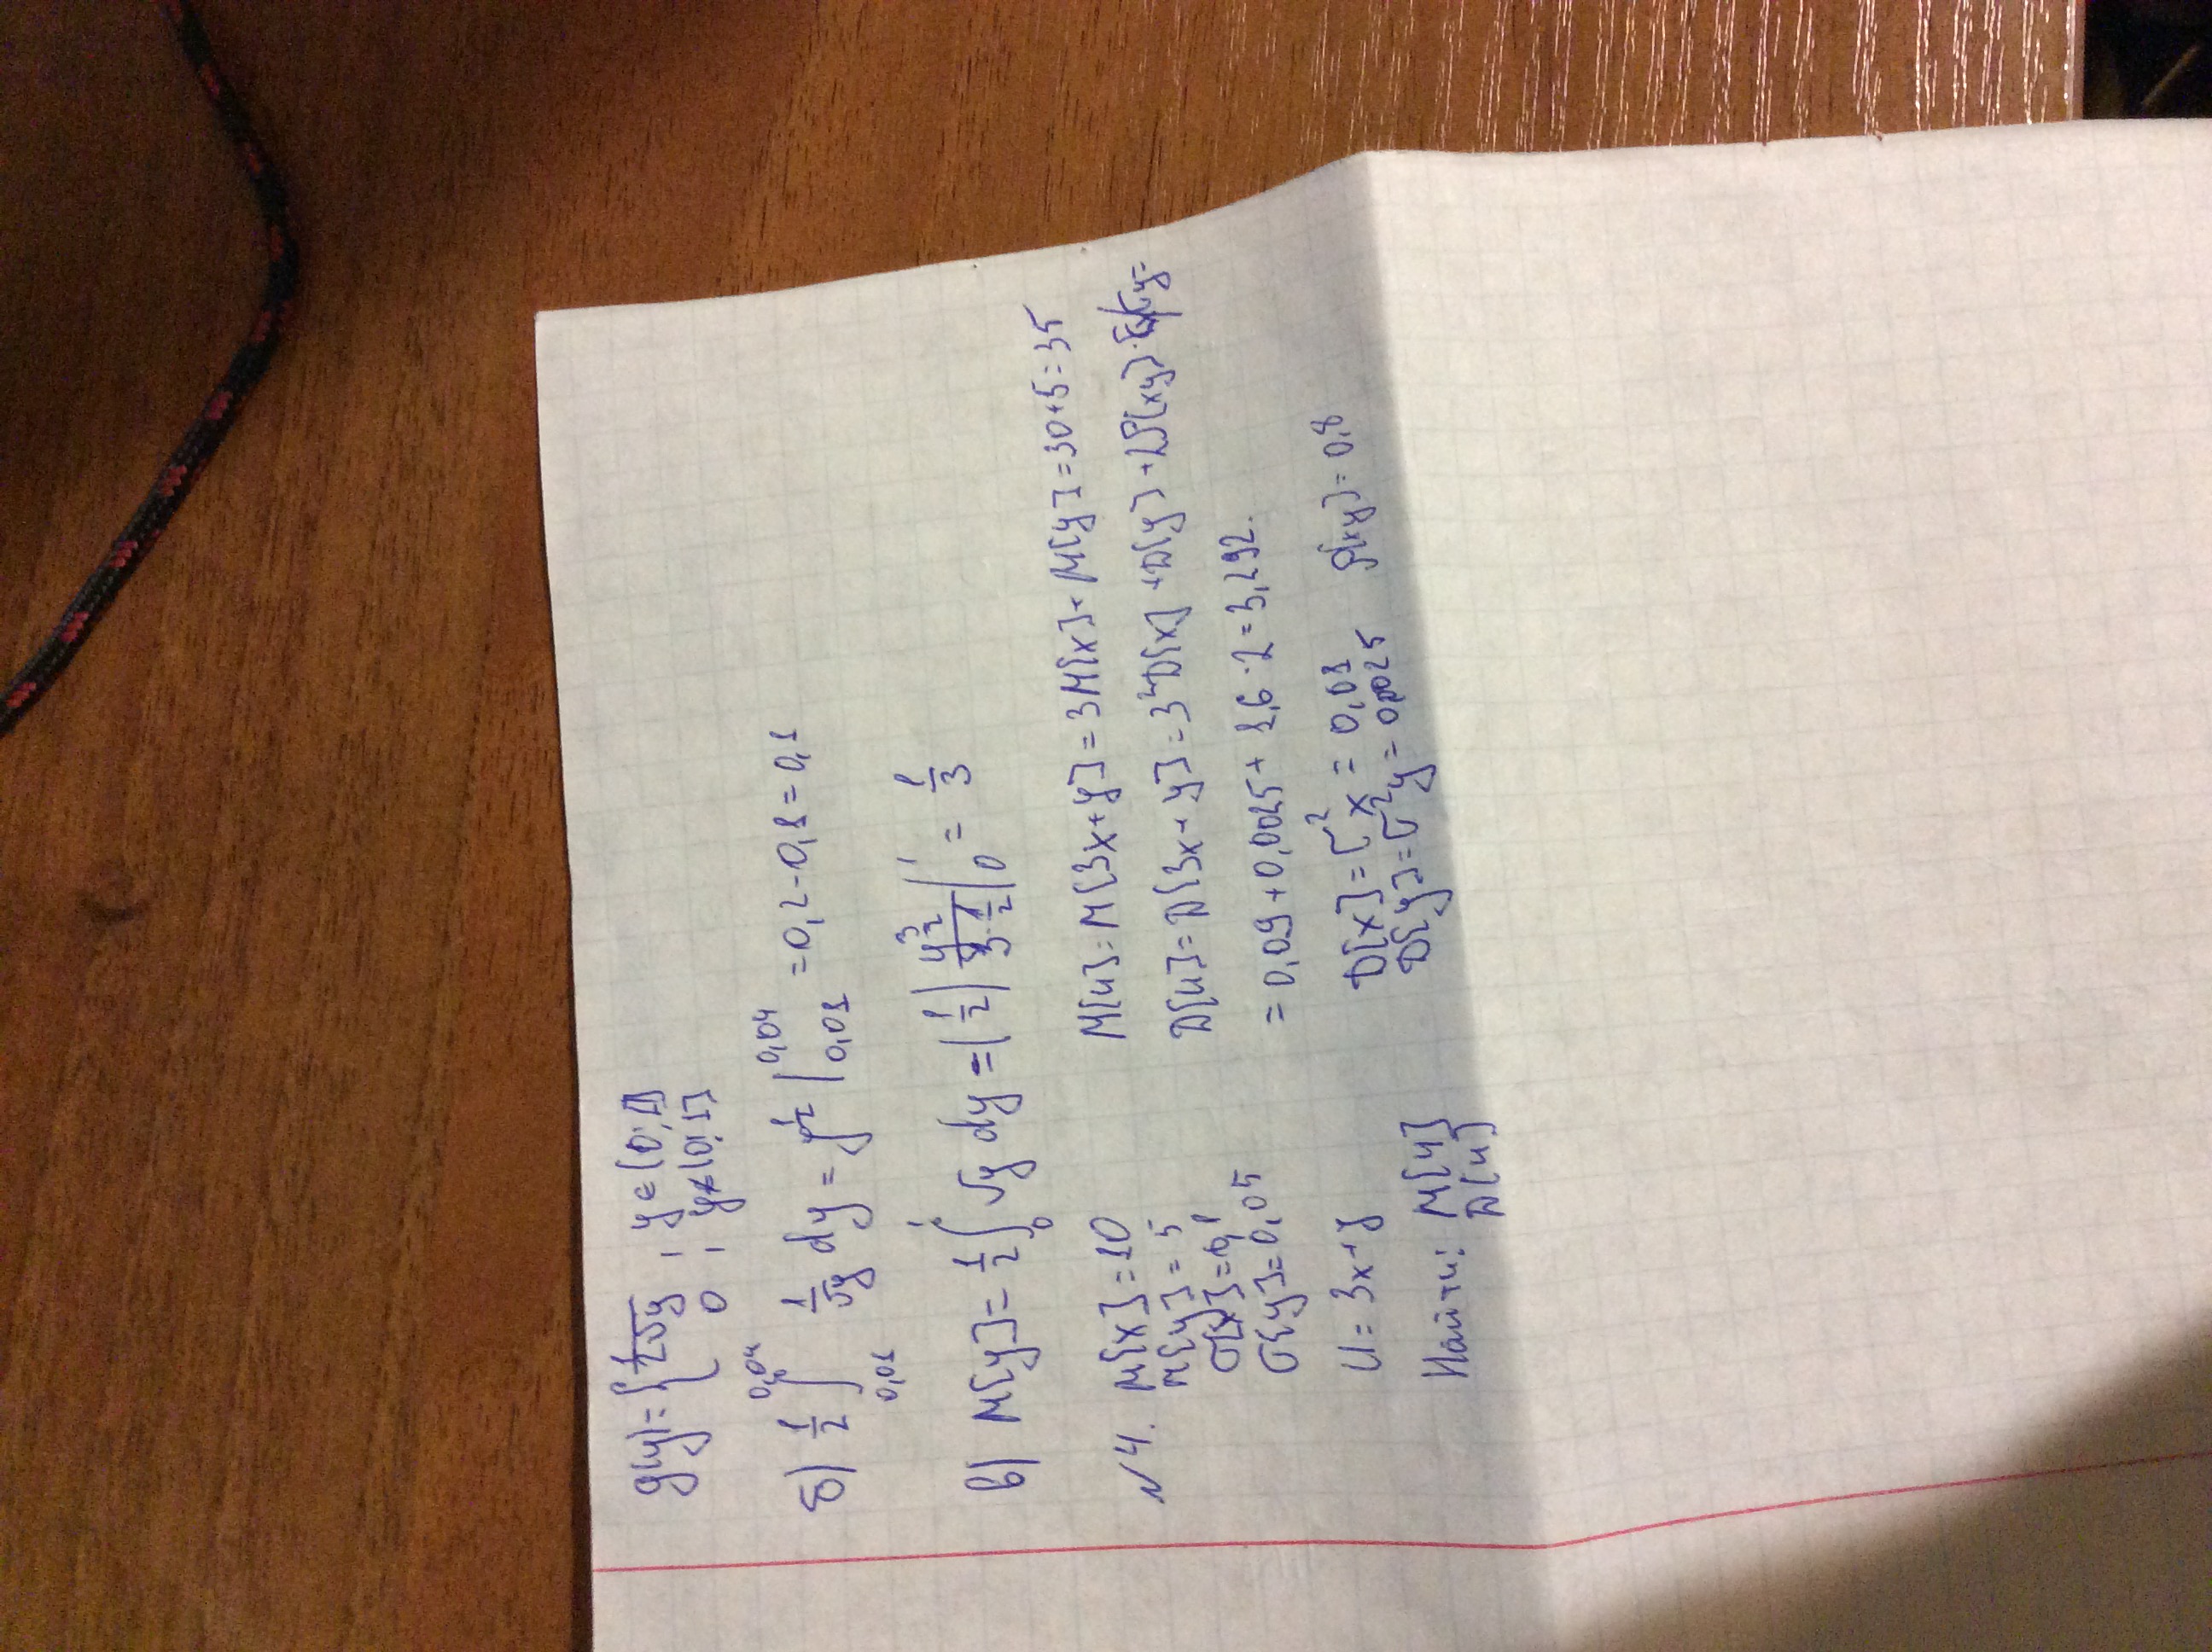 g(y) = { 1/(2√y) ; y ∈ [0; 1]
0 ; y ∉ [0; 1]
б) 1/2 ∫_{0,01}^{0,04} 1/√y dy = y^{1/2} |_{0,01}^{0,04} = 0,2 - 0,1 = 0,1
в) M[y] = 1/2 ∫_0^1 √y dy = (1/2) y^{3/2} / (3 · 1/2) |_0^1 = 1/3
№4. M[x] = 10
M[y] = 5
σ[x] = 0,1
σ[y] = 0,05
U = 3x + y
Найти: M[u]
D[u]
M[u] = M[3x + y] = 3M[x] + M[y] = 30 + 5 = 35
D[u] = D[3x + y] = 3²D[x] + D[y] + 2P[xy] ·
= 0,09 + 0,0025 + 1,6 · 2 = 3,292.
D[x] = σ²x = 0,01
D[y] = σ²y = 0,0025 P[xy] = 0,8